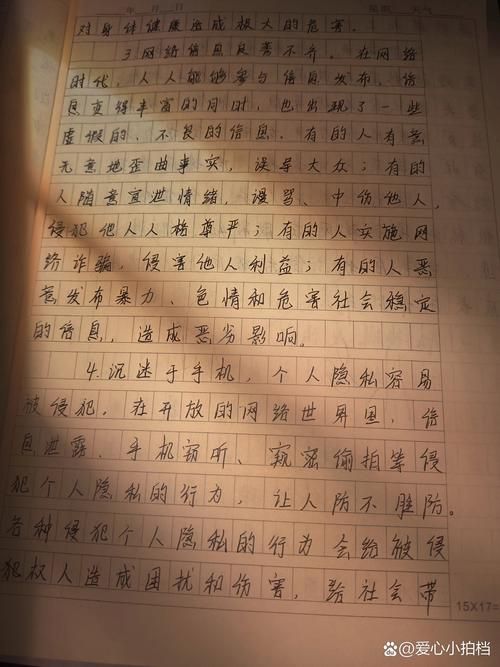 年 月 日 星期 天气
对身体健康造成极大的危害。
3.网络信息良莠不齐。在网络
时代，人人能够参与信息发布，信
息变得丰富的同时，也出现了一些
虚假的、不良的信息。有的人有意
无意地歪曲事实，误导大众；有的
人随意宣泄情绪，谩骂、中伤他人，
侵犯他人人格尊严；有的人实施网
络诈骗，侵害他人利益；有的人恶
意发布暴力、色情和危害社会稳定
的信息，造成恶劣影响。
4.沉迷于手机，个人隐私容易
被侵犯。在开放的网络世界里，信
息泄露、手机窃听、窥密偷拍等侵
犯个人隐私的行为，让人防不胜防。
各种侵犯个人隐私的行为会给被侵
犯权人造成困扰和伤害，给社会带
15X17=
爱心小拍档